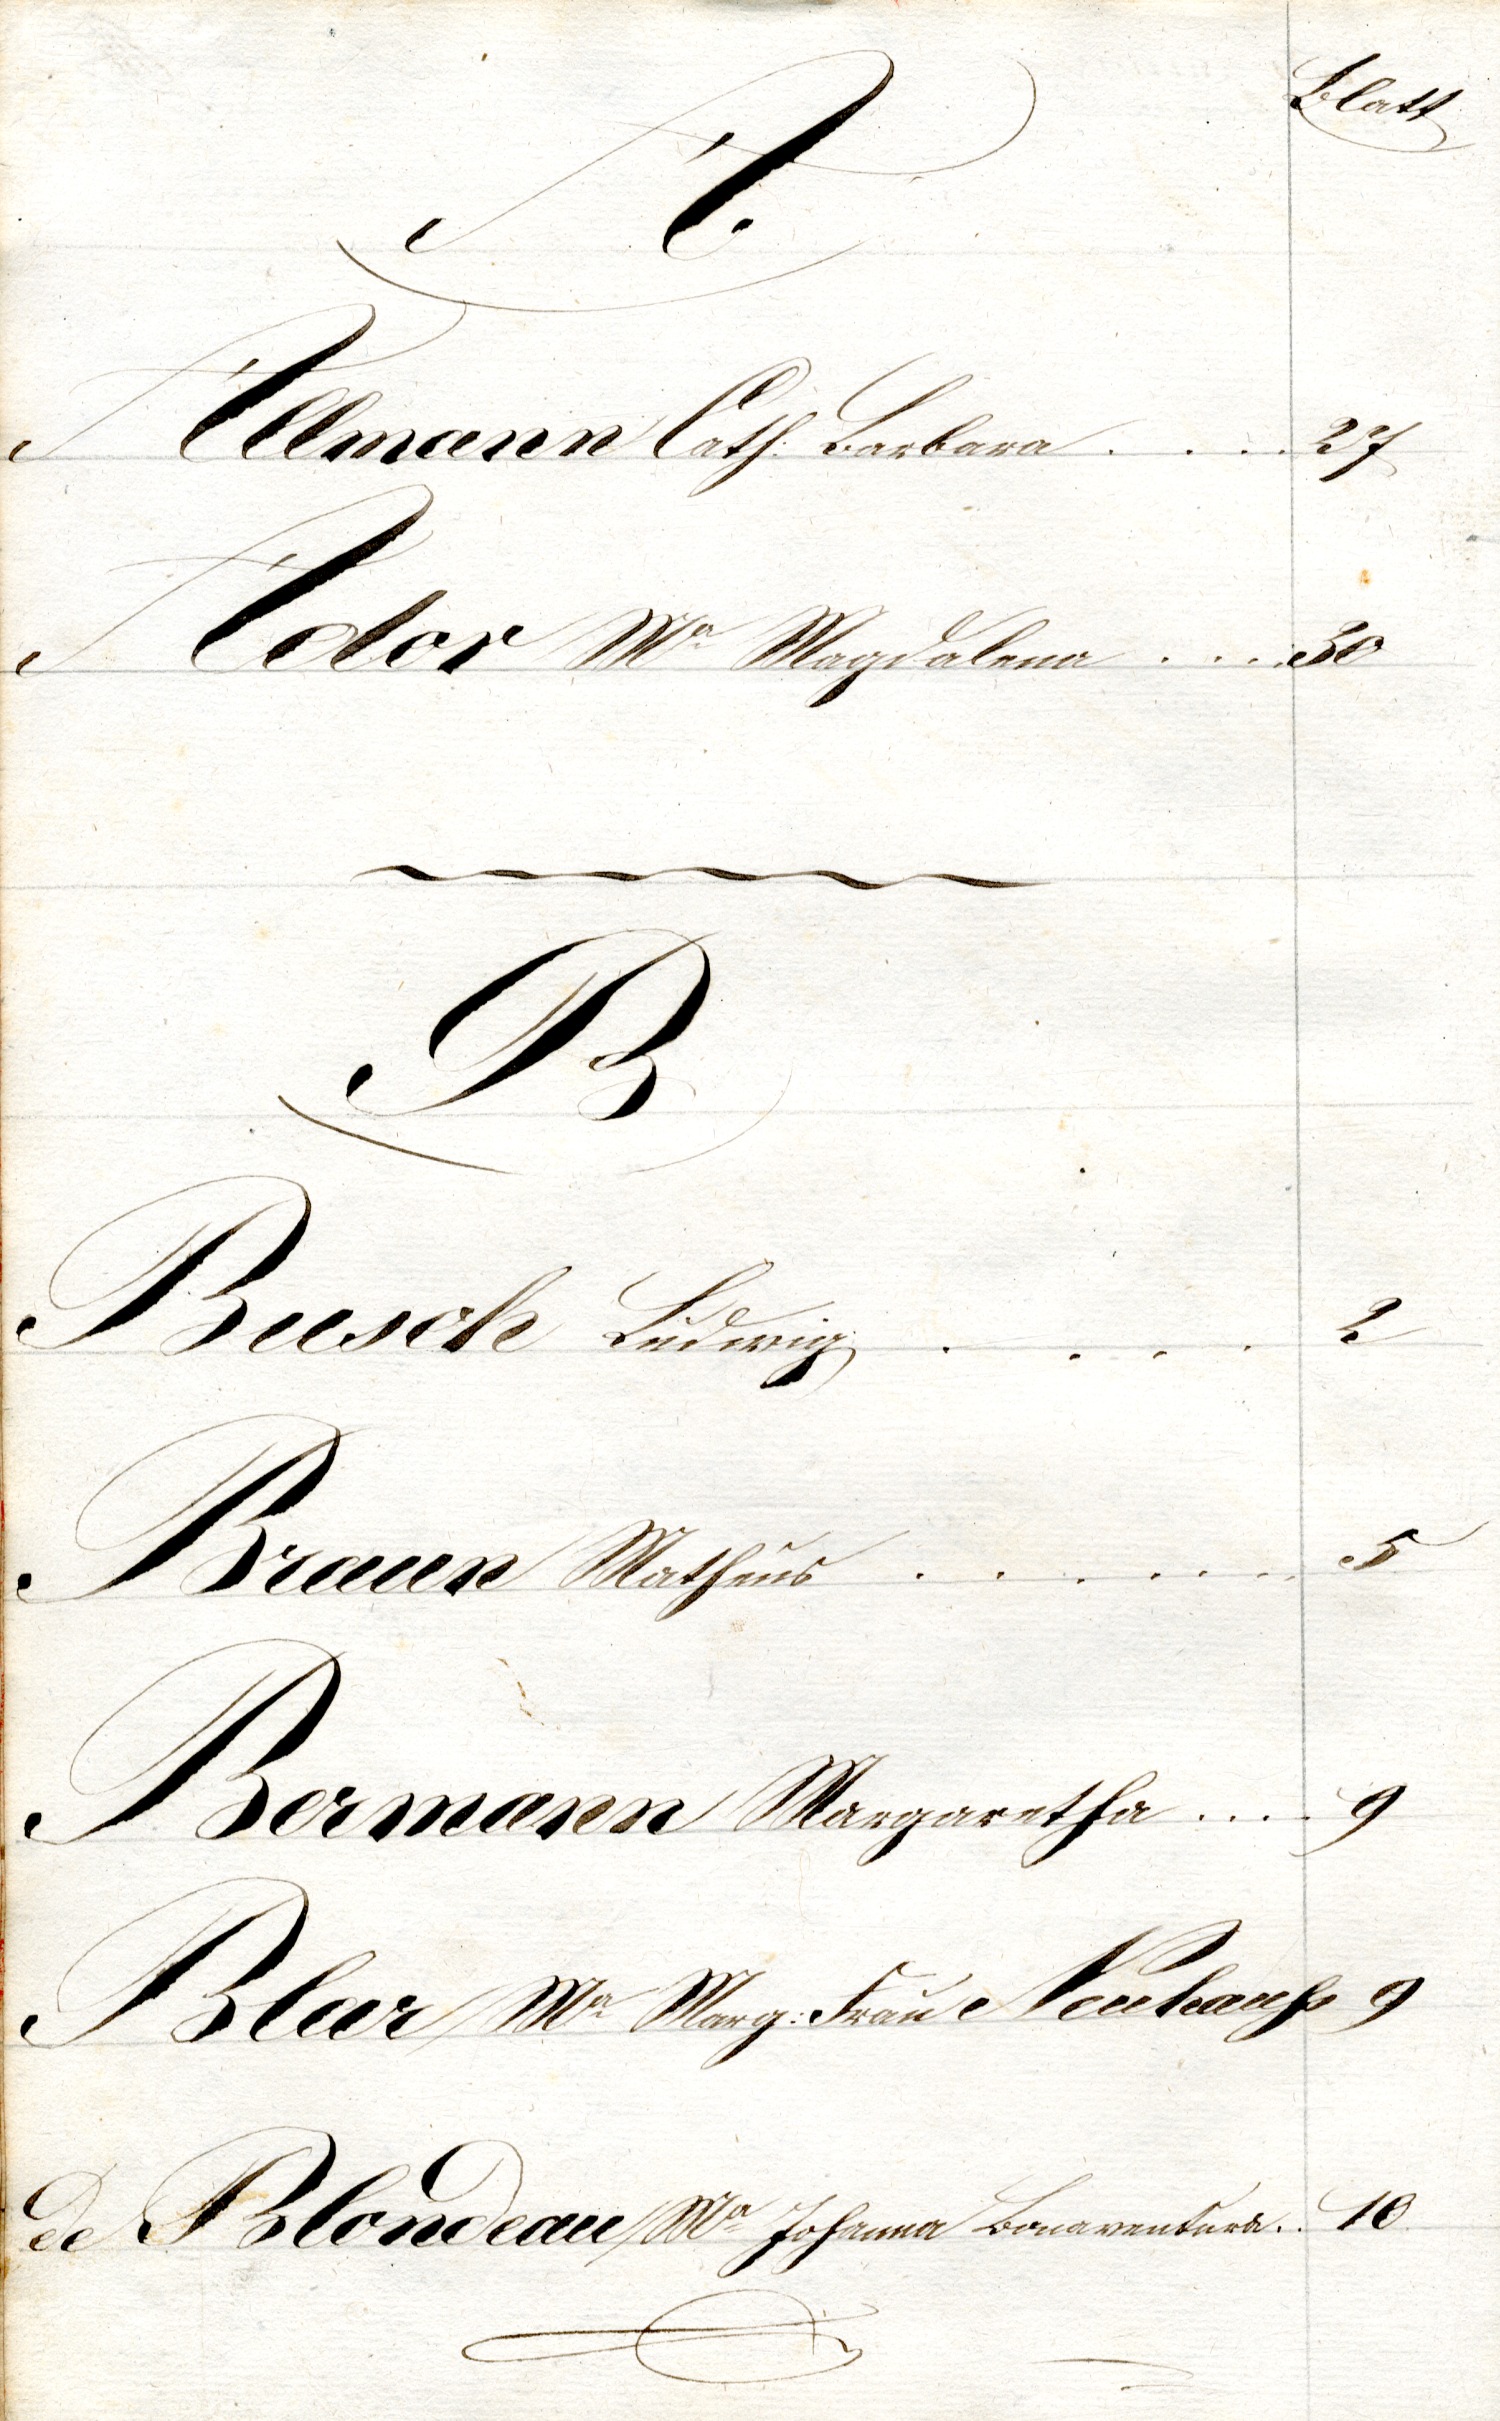 Blatt
A
Allmann Cath: Barbara . . . . 27
Ador Mª Magdalena . . . . 30
B
Busch Ludwig . . . . 2
Braun Matheus . . . . . . . 5
Bermann Margaretha . . . . 9
Blar Mª Marg: Frau Neuhaus 9
de Blondeau Mª Johanna Bonaventura . . 10